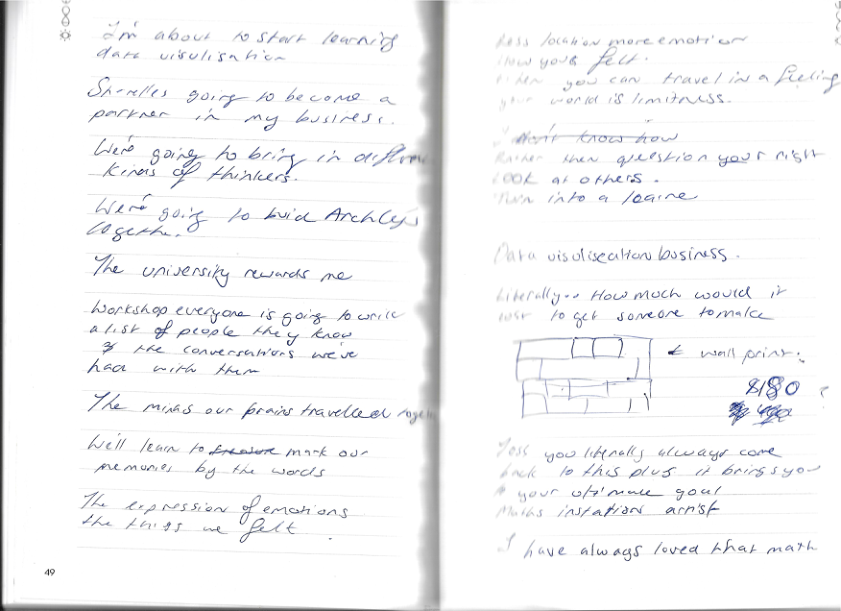 I'm about to start learning
data visulisation
Sherelles going to become a
partner in my business.
We're going to bring in
kinds of thinkers.
We're going to buid Archleys
together.
The university rewards me
Workshop everyone is going to write
a list of people they know
& the conversations we've
had with them
The minds our brains travelled
We'll learn to mark our
memories by the words
The expression of emotions
the things we felt.
49
less location more emotion
How you felt.
When you can travel in a feeling
your world is limitness.
I don't know how
Rather then question your right
Look at others.
Turn into a
Data visuliseation business.
Literally.. How much would it
cost to get someone to make
← wall print.
$180 ?
you literally always come
back to this plus it brings you
to your ultimate goal
Maths instations artist
I have always loved that math